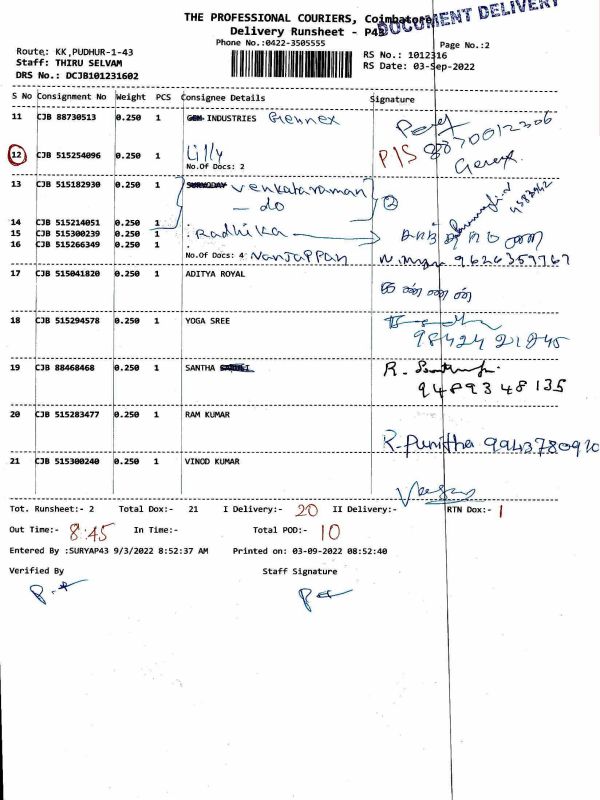 THE PROFESSIONAL COURIERS, Coimbatore
DOCUMENT DELIVERY
Delivery Runsheet - P43
Phone No.:0422-3505555
Page No.:2
Route: KK,PUDHUR-1-43
RS No.: 1012316
Staff: THIRU SELVAM
RS Date: 03-Sep-2022
DRS No.: DCJB101231602
S No Consignment No Weight PCS Consignee Details Signature
11 CJB 88730513 0.250 1 GEM INDUSTRIES Gennex
8870012306
12 CJB 515254096 0.250 1 Lilly P/S
No.Of Docs: 2
13 CJB 515182930 0.250 1 SURYODAY Venkataraman
- do 2
14 CJB 515214051 0.250 1
15 CJB 515300239 0.250 1 : Radhika
16 CJB 515266349 0.250 1 :
No.Of Docs: 4 Nanjappan 9626359767
17 CJB 515041820 0.250 1 ADITYA ROYAL
18 CJB 515294578 0.250 1 YOGA SREE
98424 21845
19 CJB 88468468 0.250 1 SANTHA R.
9489348135
20 CJB 515283477 0.250 1 RAM KUMAR
R. Punitha 9943780920
21 CJB 515300240 0.250 1 VINOD KUMAR
Tot. Runsheet:- 2 Total Dox:- 21 I Delivery:- 20 II Delivery:- RTN Dox:- 1
Out Time:- 8:45 In Time:- Total POD:- 10
Entered By :SURYAP43 9/3/2022 8:52:37 AM Printed on: 03-09-2022 08:52:40
Verified By Staff Signature